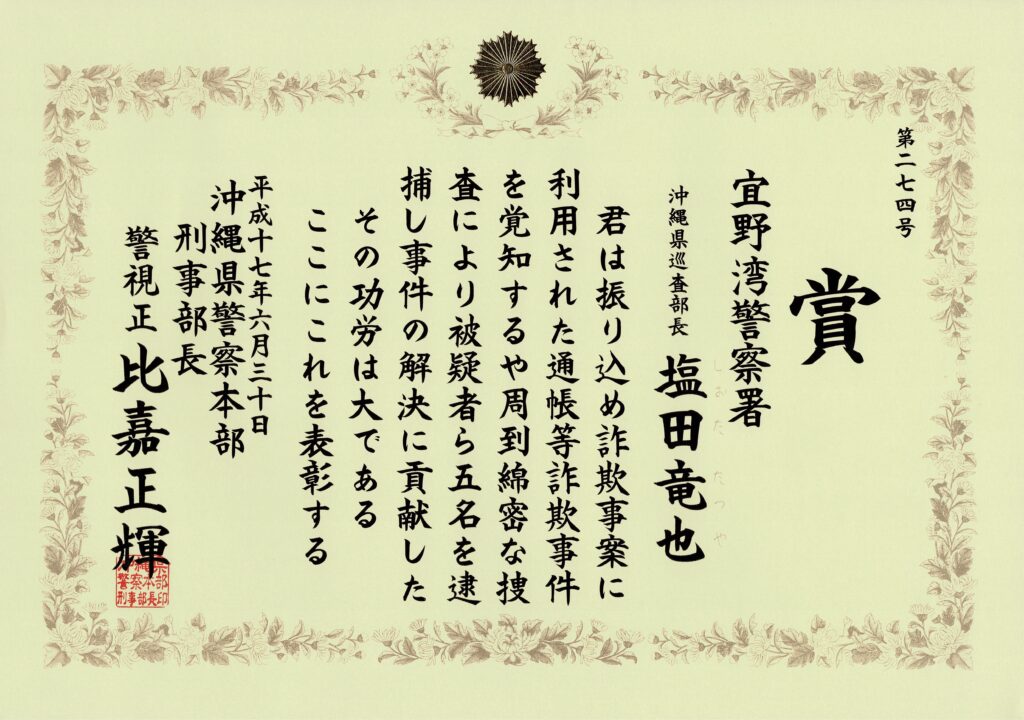 第二七四号
賞
宜野湾警察署
沖縄県巡査部長 塩田竜也
しおたたつや
君は振り込め詐欺事案に
利用された通帳等詐欺事件
を覚知するや周到綿密な捜
査により被疑者ら五名を逮
捕し事件の解決に貢献した
その功労は大である
ここにこれを表彰する
平成十七年六月三十日
沖縄県警察本部
刑事部長
警視正 比嘉正輝
沖縄県
警察本部
刑事部長印